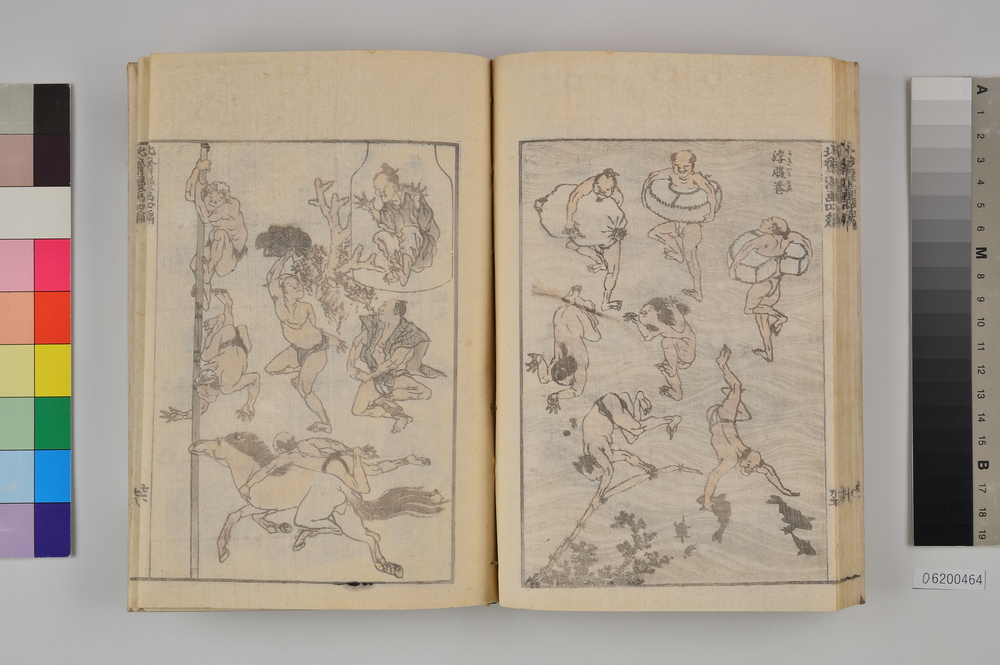 浮腹巻
北斎漫画四編
北斎漫画四編
A
1
2
3
4
5
6
M
8
9
10
11
12
13
14
15
B
17
18
19
06200464